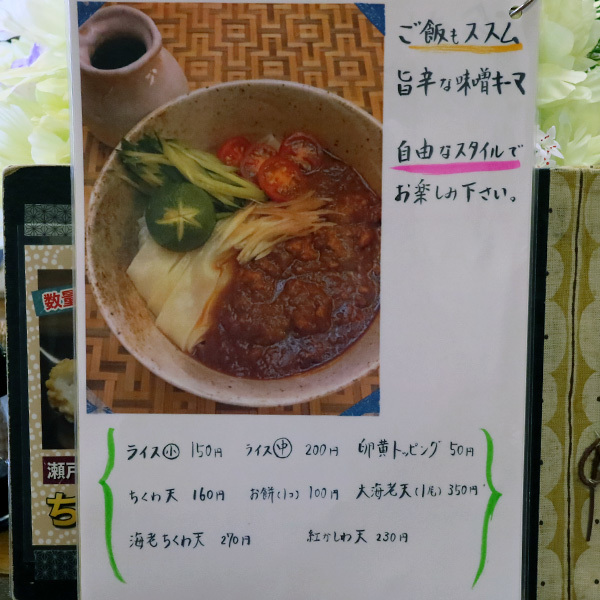 ご飯もススム
旨辛な味噌キーマ
自由なスタイルで
お楽しみ下さい。
ライス小 150円 ライス中 200円 卵黄トッピング 50円
ちくわ天 160円 お餅(1コ) 100円 大海老天(1尾) 350円
海老ちくわ天 270円 紅かしわ天 230円
数量
瀬戸
ち